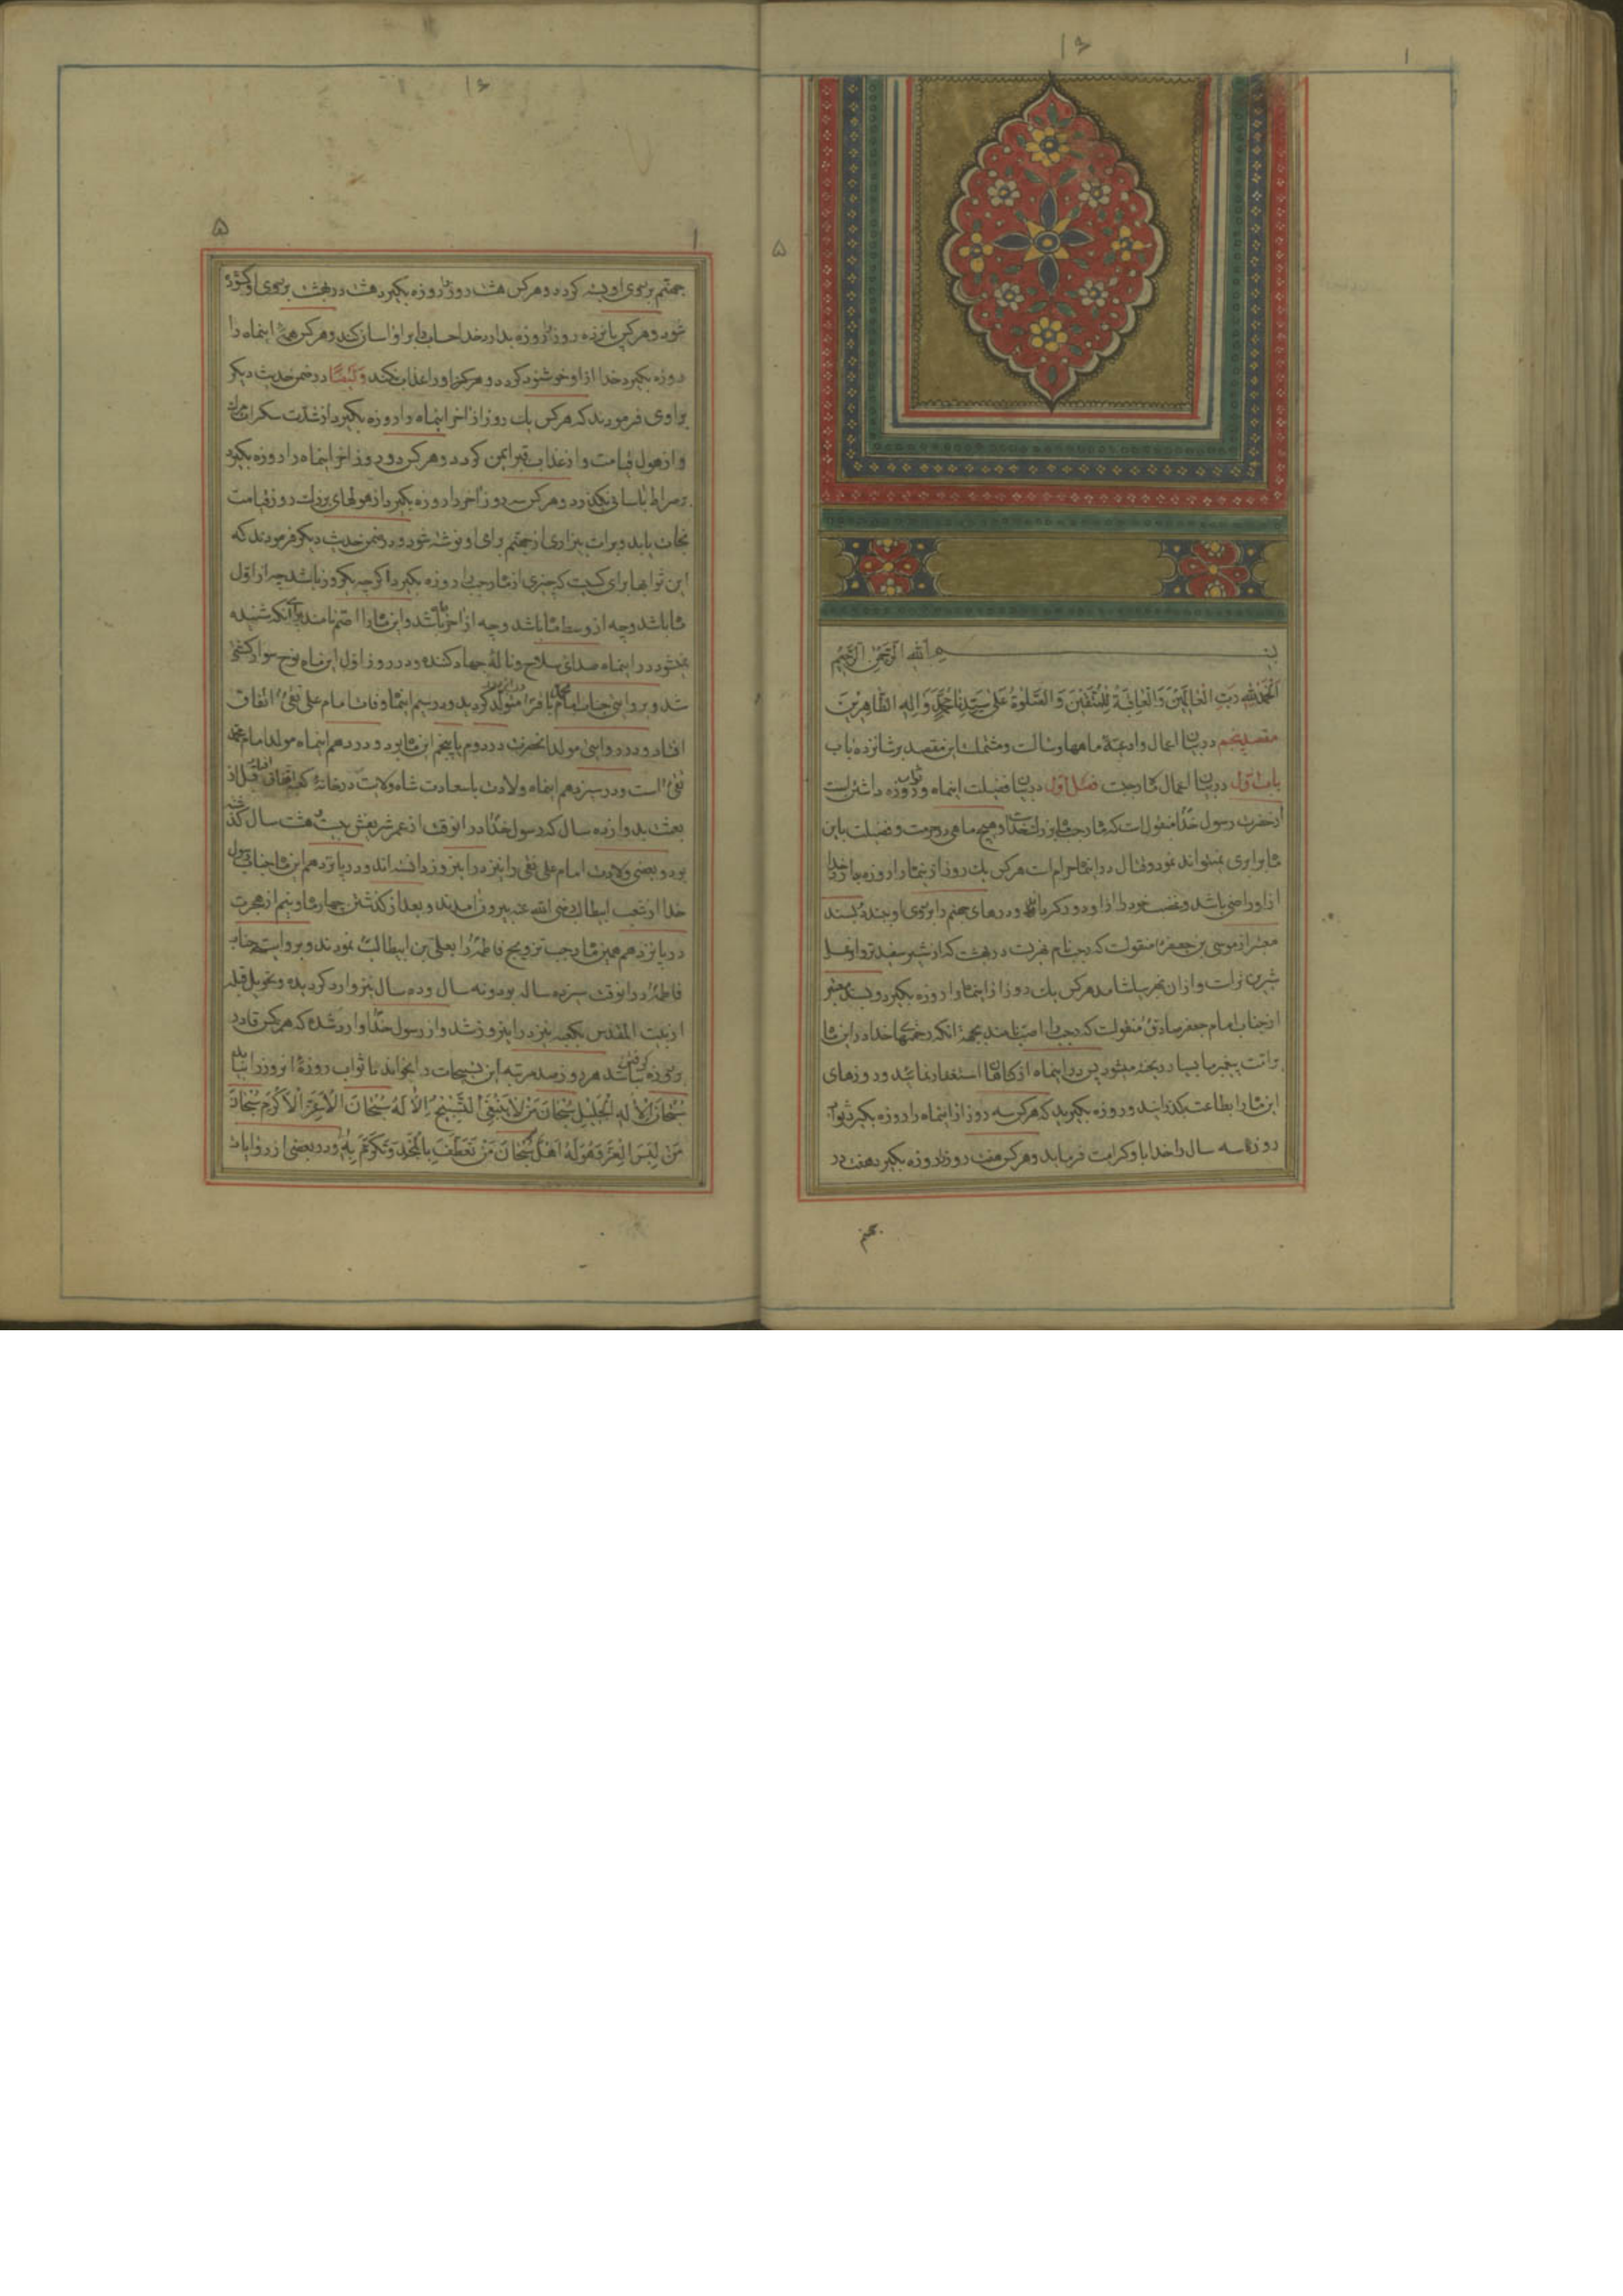 ۱۶
۱
۵
بسم الله الرحمن الرحیم
اَلْحَمْدُ لِلّهِ رَبِّ الْعالَمینَ وَ الْعاقِبَةُ لِلْمُتَّقینَ وَ الصَّلوةُ عَلی سَیِّدِنا مُحَمَّدٍ وَ الِهِ الطّاهِرینَ
مقصد پنجم در بیان اعمال و ادعیهٔ ماهها و سالست و مشتملست این مقصد بر شانزده باب
باب اول در بیان اعمال ماه رجبست فصل اول در بیان فضیلت اینماه و ثواب روزه داشتن است
از حضرت رسول خدا منقولست که ماه رجب ماه بزرك خداست و هیچ ماهی در حرمت و فضیلت باین
ماه برابری نمیتواند نمود و قتال در اینماه حرام است هر کس یك روز از اینماه را روزه بدارد خدا
از او راضی باشد و غضب خود را از او دور گرداند و درهای جهنم را بر روی او ببندد و بسند
معتبر از موسی بن جعفر منقولست که رجب نام نهریست در بهشت که از شیر سفیدتر و از عسل
شیرین تر است و از ان نهر بیاشامد هر کس یك روز از اینماه را روزه بگیرد و بسند معتبر
از جناب امام جعفر صادق منقولست که رجب را اصب نامند بجهة انکه رحمتهای خدا در این ماه
بر امت پیغمر ما بسیار ریخته میشود پس در اینماه از گناهان استغفار نمائید و روزهای
این ماه را بطاعت بگذرانید و روزه بگیرید که هر کس سه روز از اینماه را روزه بگیرد ثواب
روزه سه سال را خدا باو کرامت فرماید و هر کس هفت روز را روزه بگیرد هفت در
جهنم
۱۶
۵
۱
جهنم بر روی او بسته گردد و هر کس هشت روز را روزه بگیرد هشت در بهشت بر روی او گشوده
شود و هر کس پانزده روز را روزه بدارد خدا حساب را بر او اسان کند و هر کس همهٔ اینماه را
روزه بگیرد خدا از او خوشنود گردد و هرگز او را عذاب نکند و ایضاً در ضمن حدیث دیگر
براوی فرمودند که هر کس یك روز از اخر اینماه را روزه بگیرد از شدت سکرات مرك
و از هول قیامت و از عذاب قبر ایمن گردد و هر کس دو روز از اخر اینماه را روزه بگیرد
بر صراط باسانی بگذرد و هر کس سه روز اخر را روزه بگیرد از هولهای بزرك روز قیامت
نجات یابد و برات بیزاری از جهنم برای او نوشته شود و در ضمن حدیث دیگر فرمودند که
این ثوابها برای کسیست که چیزی از ماه رجب را روزه بگیرد اگرچه یکروز باشد چه از اول
ماه باشد و چه از وسط ماه باشد و چه از اخر ماه باشد و این ماه را اصم نامند برای آنکه شنیده
نمیشود در اینماه صدای سلاح و نالهٔ جهاد کننده و در روز اول این ماه نوح سوار کشتی
شد و بروایتی جناب امام محمد باقر در این روز متولد گردید و در سیم اینماه وفات امام علی نقی اتفاق
افتاد و در روایتی مولد انحضرت در دوم یا پنجم این ماه بود و در دهم اینماه مولد امام محمد
تقی است و در سیزدهم اینماه ولادت باسعادت شاه ولایت در خانهٔ کعبه اتفاق افتاد قبل از
بعثت بدوازده سال که رسول خدا در انوقت از عمر شریفش بیست و هشت سال گذشته
بود و بعضی ولادت امام علی نقی را نیز در این روز دانسته اند و در پانزدهم این ماه جناب رسول
خدا از شعب ابیطالب رضی الله عنه بیرون امدند و بعد از گذشتن چهار ماه و نیم از هجرت
در پانزدهم همین ماه رجب تزویج فاطمه را بعلی بن ابیطالب نمودند و بروایتی جناب
فاطمه در انوقت سیزده ساله بود و نه سال و ده سال نیز وارد گردیده و تحویل قبله
از بیت المقدس بکعبه نیز در این روز شد و از رسول خدا وارد شده که هر کس قادر
بر روزه گرفتن نباشد هر روز صد مرتبه این تسبیحات را بخواند تا ثواب روزهٔ انروز را بیابد
سُبْحانَ الْاِلهِ الْجَلیلِ سُبْحانَ مَنْ لا یَنْبَغِی التَّسْبیحُ اِلّا لَهُ سُبْحانَ الْاَعَزِّ الْاَکْرَمِ سُبْحانَ
مَنْ لَبِسَ الْعِزَّ وَ هُوَ لَهُ اَهْلٌ سُبْحانَ مَنْ تَعَطَّفَ بِالْمَجْدِ وَ تَکَرَّمَ بِهِ و در بعضی از روایات